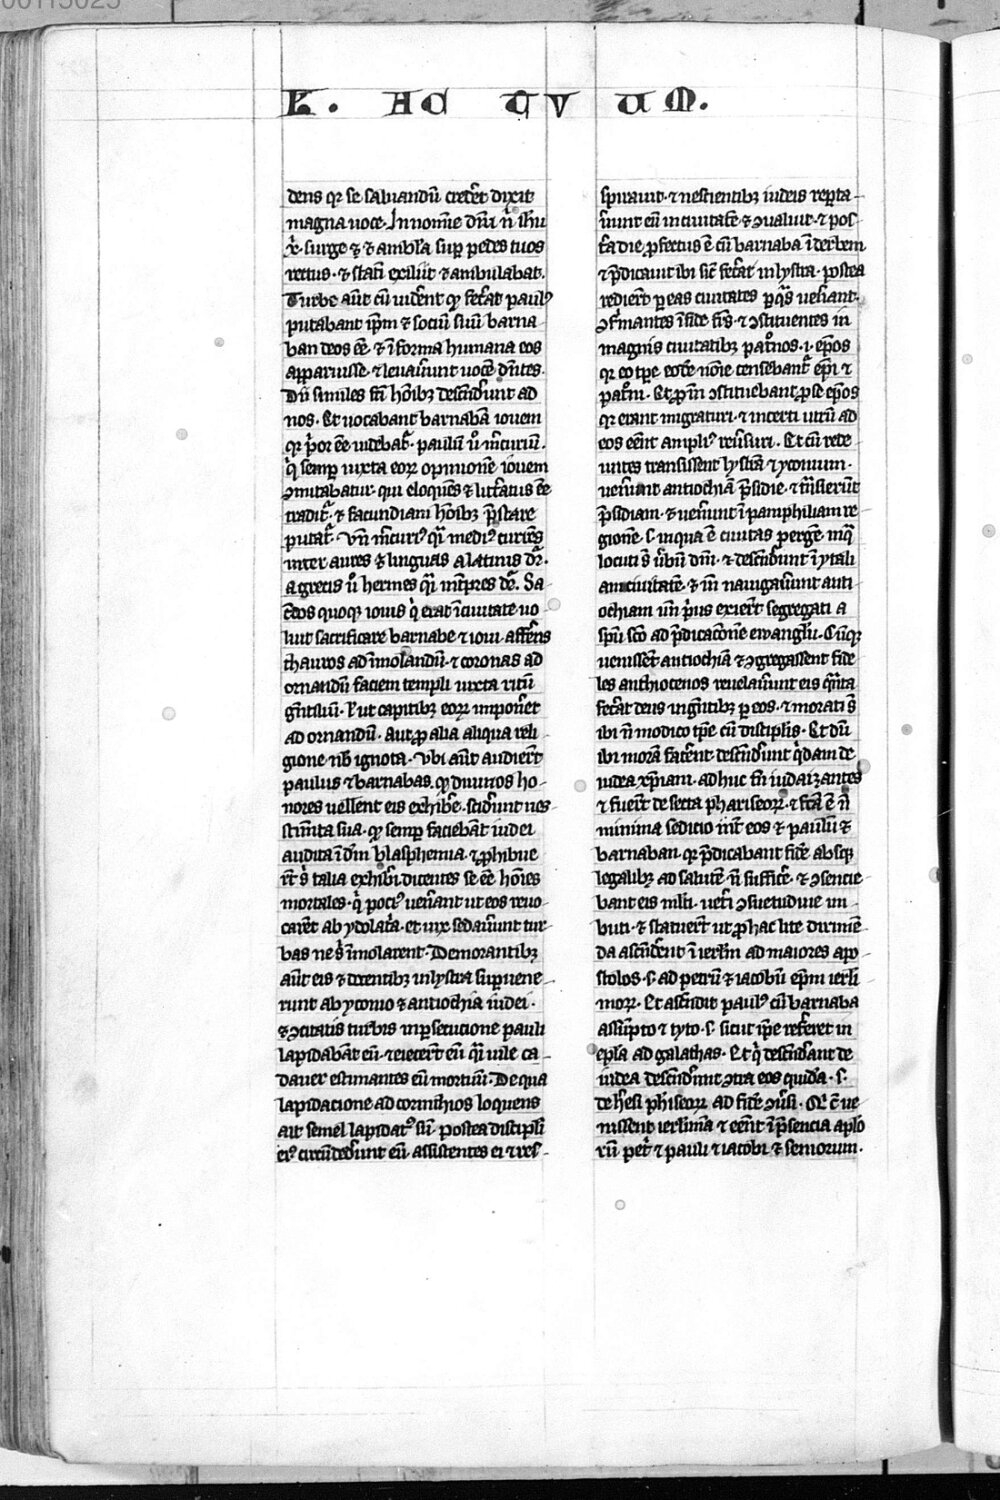 00113025
K. AC TV UM.
dens qr se saluandū crederet dixit
magna uoce. In nomīe dnī nr̄i ihu
xr̄. surge & & ambula suꝑ pedes tuos
rectus. & statī exiliit & ambulabat.
Turbe aūt cū uidissent qꝫ fecerat paulꝰ
putabant ipm̄ & sociū suū barna-
ban deos eē. & ī forma humana eos
apparuisse. & leuauerunt uocē dicentes.
Dii similes facti hoībꝫ descenderunt ad
nos. Et uocabant barnabā iouem
qr prior eē uidebat. paulū ū mercuriū.
qi semꝑ iuxta eoꝝ opinionē iouem
ꝯmitabatur. qui eloquens & litteratus eē
traditur. & facundiam hoībꝫ prestare
putatur. Vn̄ mercuriꝰ quasi mediꝰ curiēs
inter aures & linguas a latinis dr̄.
a grecis ū hermes quasi interpres dr̄. Sa-
cerdos quoqꝫ iouis qi erat ī ciuitate uo-
luit sacrificare barnabe & ioui. afferēs
thauros ad īmolandū. & coronas ad
ornandū faciem templi iuxta ritū
gentiliū. Vel ut capitibꝫ eoꝝ imponeret
ad ornandū. aut ꝓ alia aliqua reli-
gione nobis ignota. Vbi aūt audierūt
paulus & barnabas. qꝫ diuinos ho-
nores uellent eis exhibere. sciderunt ues-
timēta sua. qꝫ semꝑ faciebāt iudei
audita ī deum blasphemia. & ꝓhibue-
rūt si talia exhiberi dicentes se eē homīes
mortales. qi pociꝰ uenirant ut eos reuo-
carēt ab ydolatria. et uix sedauerunt tur-
bas ne sibi īmolarent. Demorantibꝫ
aūt eis & docentibꝫ in lystra suꝑuene-
runt ab yconio & antiochia iudei.
& ꝯcitatis turbis in ꝑsecutione pauli
lapidabāt eū. & eiecerūt eū quasi uile ca-
dauer estimantes eū mortuū. De qua
lapidacione ad corinthios loquens
ait semel lapidatꝰ sum. postea discipli
eiꝰ circūdederunt eū. assistentes ei & res-
spirauit. & nescientibꝫ iudeis reporta-
uerunt eū in ciuitatē & ꝯualuit. & pos-
tera die ꝓfectus ē cū barnaba ī derben
& predicauit ibi sicut fecerat in lystra. postea
redierūt ꝑ eas ciuitates ꝑ quas uenerant.
ꝯfirmantes ī fide fratres. & ꝯstituentes in
magnis ciuitatibꝫ patronos. i. epōs
qr eo tꝑe eodē noīe censebantur epī &
patronī. Et ꝓ īn ꝯstituebant ꝓ se epōs
qr erant migraturi. & incerti utrū ad
eos eēnt ampliꝰ reuersuri. Et cū rede-
untes transissent lystrā & yconium.
uenerunt antiochiā pisidie. & transierunt
pisidiam. & uenerunt ī pamphiliam re-
gionē. s. in qua ē ciuitas pergē. in qua
locuti sunt uerbū dnī. & descenderunt ī ytali-
am ciuitatē. & īn nauigauerunt anti-
ochiam un̄ prius exierūt segregati a
spū scō ad predicacōnē ewangelii. Cūqꝫ
uenissēt antiochiā & ꝯgregassent fide-
les anthiocenos reuelauerunt eis quāta
fecerat deus in gentibꝫ ꝑ eos. & morati sunt
ibi nō modico tꝑe cū discipulis. Et dū
ibi morā facerent descenderunt quidam de
iudea xpīani. adhuc tn̄ iudaizantes
& fuerūt de secta phariseoꝝ. & facta ē nō
minima sedicio inter eos & paulū &
barnaban. qr predicabant fidē absqꝫ
legalibꝫ ad salutē nō sufficere. & ꝯsencie-
bant eis multi. ueteri ꝯsuetudine im-
buti. & statuerūt ut ꝓ hac lite dirimē-
da ascenderent ī ierlm̄ ad maiores apo-
stolos. s. ad petrū & iacobū epm̄ ierli-
moꝝ. Et ascendit paulꝰ cū barnaba
assūpto & tyto. s. sicut ipē refert in
epl̄a ad galathas. Et qi descenderant de
iudea descenderunt ꝯtra eos quidam. s.
de heresi phariseoꝝ ad fidē ꝯuersi. Qui cū ue-
nissent ierlimā & eēnt ī presencia aplo-
rū petri & pauli & iacobi & seniorum.